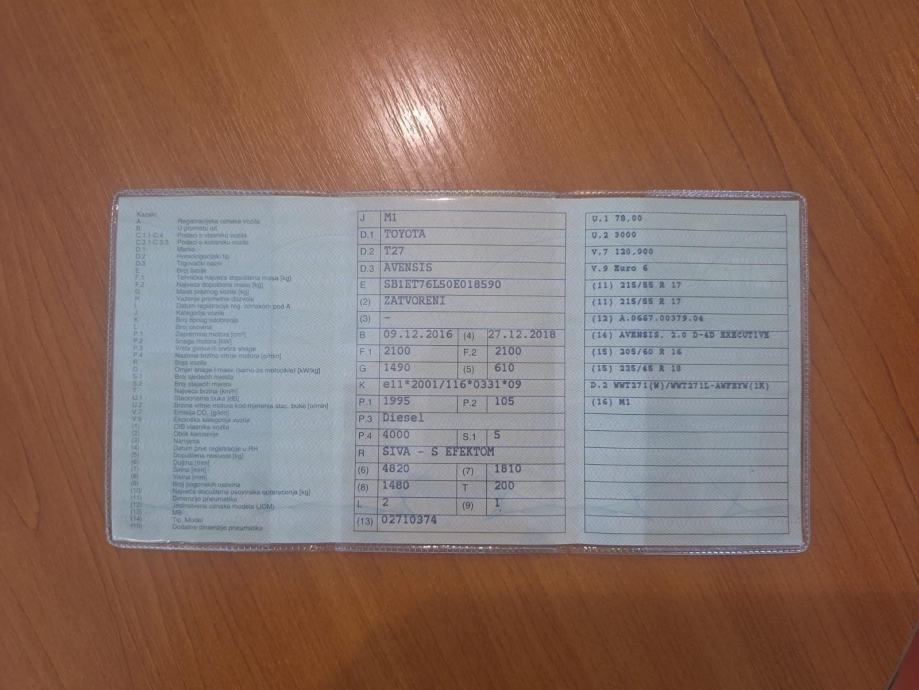 Kazalo:
A Registracijska oznaka vozila
B U prometu od
C.1.1-C.4 Podaci o vlasniku vozila
C.3.1-C.3.3 Podaci o korisniku vozila
D.1 Marka
D.2 Homologacijski tip
D.3 Trgovački naziv
E Broj šasije
F.1 Tehnička najveća dopuštena masa [kg]
F.2 Najveća dopuštena masa [kg]
G Masa praznog vozila [kg]
H Važenje prometne dozvole
I Datum registracije reg. oznakom pod A
J Kategorija vozila
K Broj tipnog odobrenja
L Broj osovina
P.1 Zapremina motora [cm³]
P.2 Snaga motora [kW]
P.3 Vrsta goriva ili izvora snage
P.4 Nazivna brzina vrtnje motora [o/min]
R Boja vozila
Q Omjer snage i mase (samo za motocikle) [kW/kg]
S.1 Broj sjedećih mjesta
S.2 Broj stajaćih mjesta
T Najveća brzina [km/h]
U.1 Stacionarna buka [dB]
U.2 Brzina vrtnje motora kod mjerenja stac. buke [o/min]
V.7 Emisija CO₂ [g/km]
V.9 Ekološka kategorija vozila
(1) OIB vlasnika vozila
(2) Oblik karoserije
(3) Namjena
(4) Datum prve registracije u RH
(5) Dopuštena nosivost [kg]
(6) Duljina [mm]
(7) Širina [mm]
(8) Visina [mm]
(9) Broj pogonskih osovina
(10) Najveća dopuštena osovinska opterećenja [kg]
(11) Dimenzije pneumatika
(12) Jedinstvena oznaka modela (JOM)
(13) MB
(14) Tip, Model
(15) Dodatne dimenzije pneumatika
J M1
D.1 TOYOTA
D.2 T27
D.3 AVENSIS
E SB1ET76L50E018590
(2) ZATVORENI
(3) –
B 09.12.2016 (4) 27.12.2018
F.1 2100 F.2 2100
G 1490 (5) 610
K e11*2001/116*0331*09
P.1 1995 P.2 105
P.3 Diesel
P.4 4000 S.1 5
R SIVA - S EFEKTOM
(6) 4820 (7) 1810
(8) 1480 T 200
L 2 (9) 1
(13) 02710374
U.1 78,00
U.2 3000
V.7 120,000
V.9 Euro 6
(11) 215/55 R 17
(11) 215/55 R 17
(12) A.0667.00379.04
(14) AVENSIS, 2.0 D-4D EXECUTIVE
(15) 205/60 R 16
(15) 225/45 R 18
D.2 WWT271(W)/WWT271L-AWFEYW(1K)
(16) M1